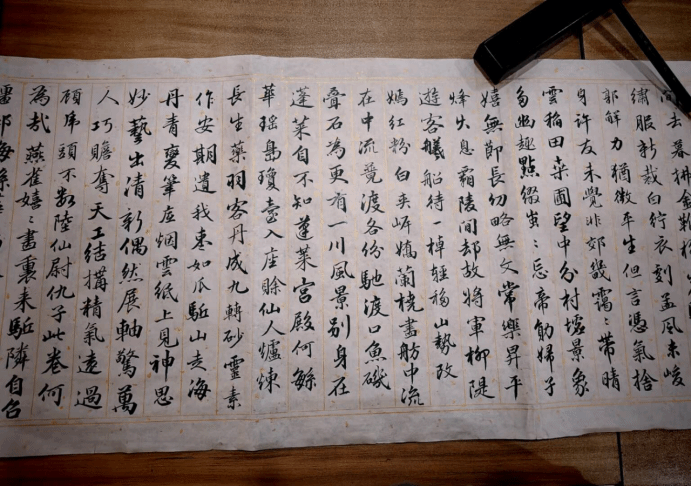 間去暮拂金
繡服新裁白紵衣刻孟風未峻
郭解力猶微平生但言憑氣捨
身許友未覺非郊畿靄〻帶晴
雲稻田桑圃望中分村墟景象
多幽趣點綴蚩〻忘帝勛婦子
嬉無節長幼略無文常樂昇平
烽火息霸陵間却故將軍柳隄
遊客艤船待棹輕移山勢改
嫣紅粉白夾岸嬌蘭橈畫舫中流
在中流競渡各份馳渡口魚磯
疊石為更有一川風景別身在
蓬萊自不知蓬萊宮殿何
華瑶島瓊壺入座賒仙人爐煉
長生藥羽客丹成九轉砂靈素
作安期遺我棗如瓜駈山走海
丹青變筆底烟雲紙上見神思
妙藝出清新偶然展軸驚萬
人巧贍奪天工結搆精氣遠過
頋庯頭不數陸仙尉仇子此卷何
為哉燕雀嬉〻畫裏来駈隣自